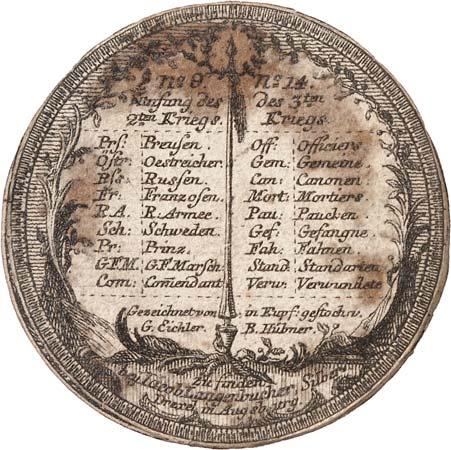 No 8 No 14
Anfang des des 3ten
2ten Kriegs. Kriegs.
Prs: Preusen. Off: Officiers
Östr: Oestreicher. Gem: Gemeine.
Rss: Russen. Can: Canonen
Fr: Franzosen. Mort: Mortiers
R.A. R. Armee. Pau: Paucken.
Sch: Schweden. Gef: Gefangne.
Pr: Prinz. Fah: Fahnen.
G.F.M. G.F. Marsch: Stand: Standarten
Com: Comendant Verw: Verwundete
Gezeichnet von in Kupf: gestochn.
G. Eichler. B. Hübner.
Zu finden
Jacob Langenbucher, Silber
in Augsburg.